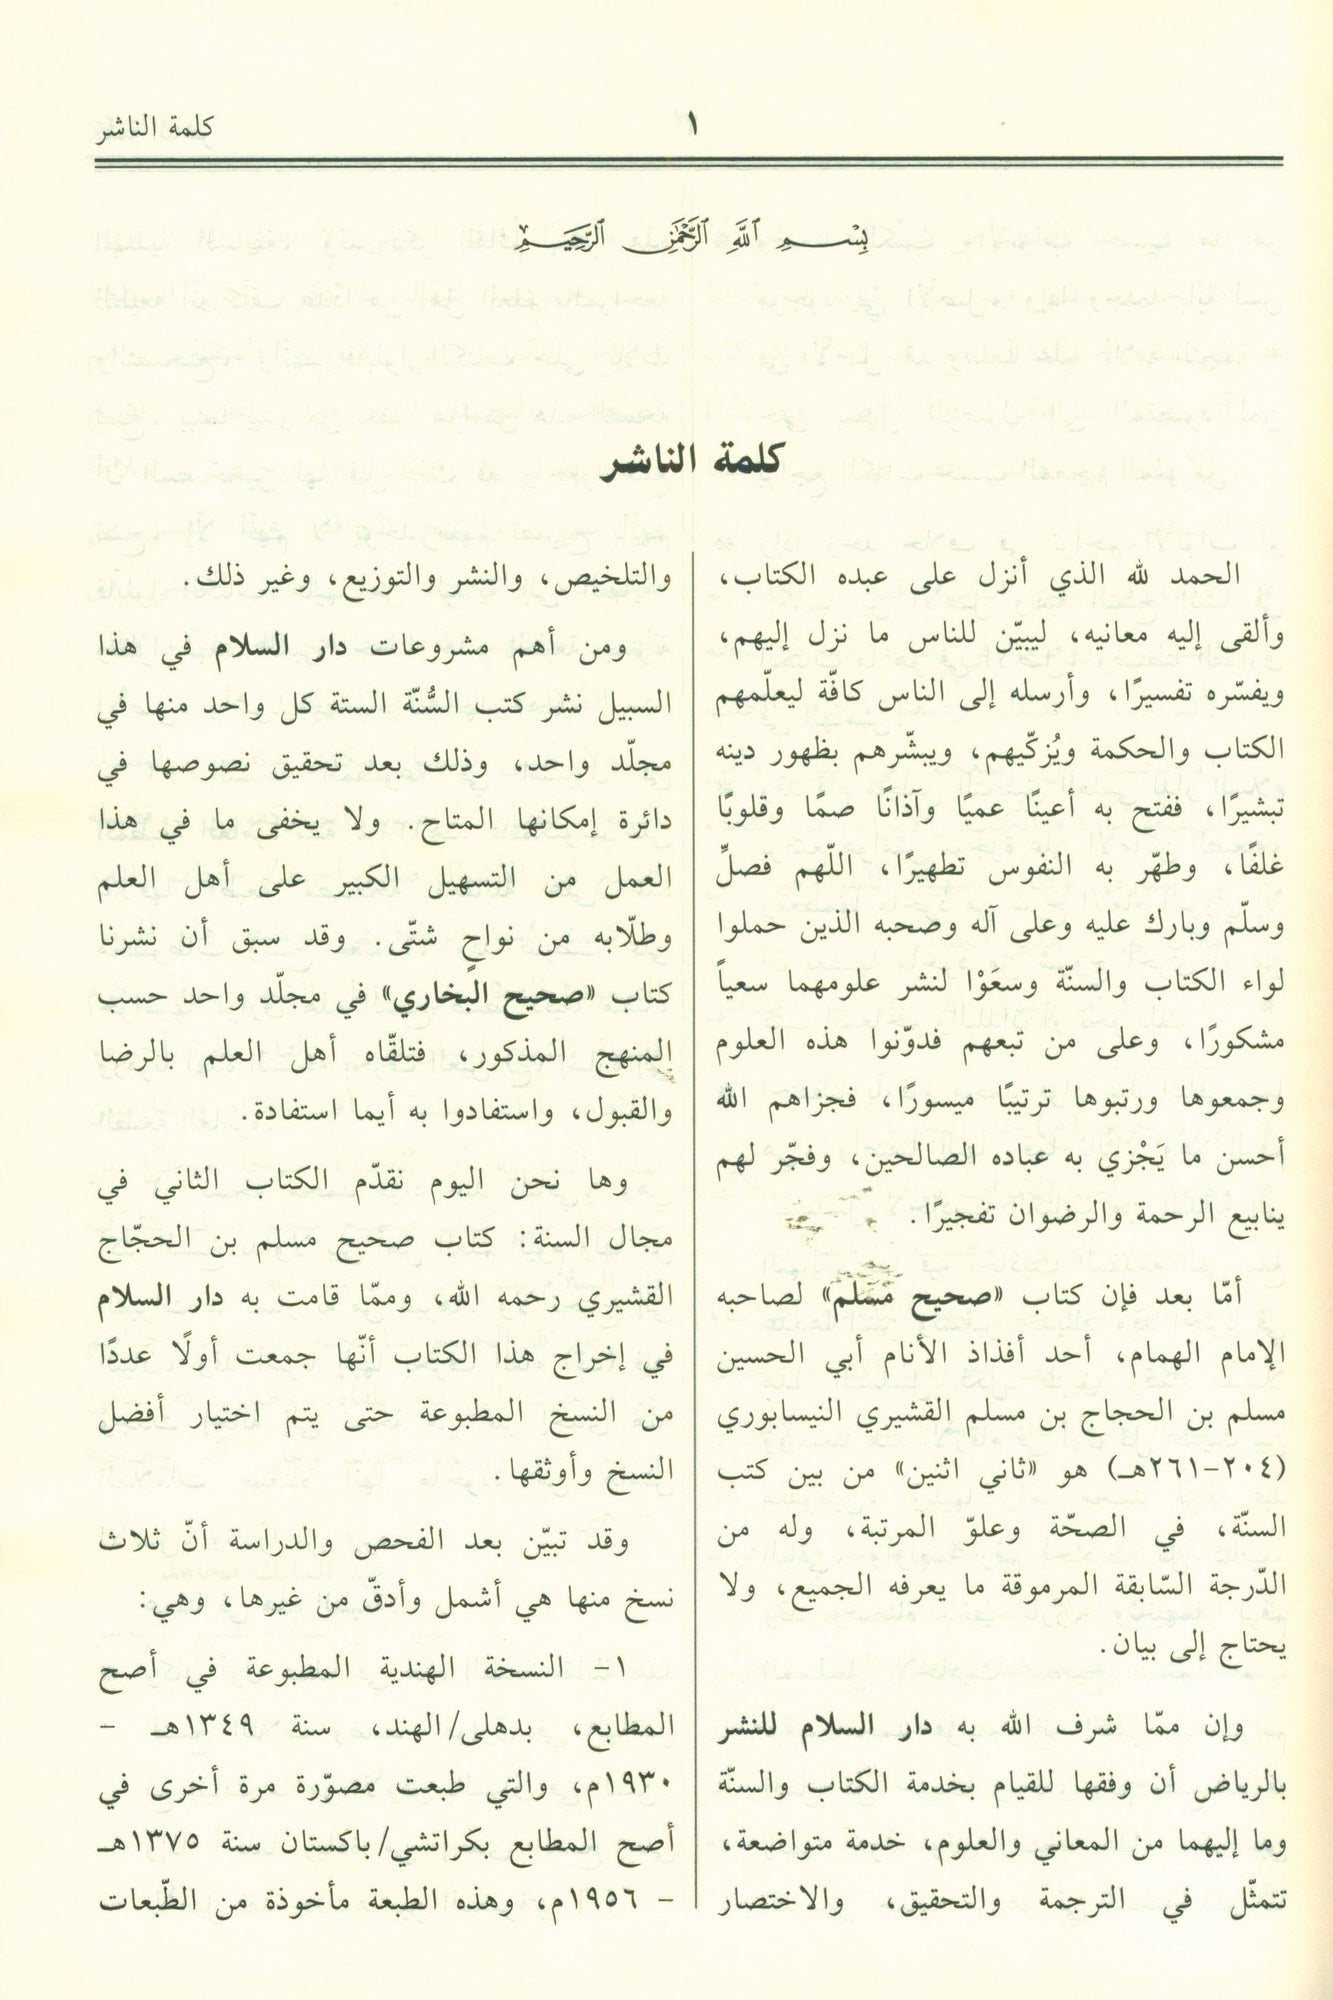 كلمة الناشر
١
بِسْمِ اللَّهِ الرَّحْمَٰنِ الرَّحِيمِ
كلمة الناشر
الحمد لله الذي أنزل على عبده الكتاب،
وألقى إليه معانيه، ليبيّن للناس ما نزل إليهم،
ويفسّره تفسيرًا، وأرسله إلى الناس كافّة ليعلّمهم
الكتاب والحكمة ويُزكّيهم، ويبشّرهم بظهور دينه
تبشيرًا، ففتح به أعينًا عميًا وآذانًا صمًا وقلوبًا
غلفًا، وطهّر به النفوس تطهيرًا، اللّهم فصلِّ
وسلّم وبارك عليه وعلى آله وصحبه الذين حملوا
لواء الكتاب والسنّة وسعَوْا لنشر علومهما سعياً
مشكورًا، وعلى من تبعهم فدوّنوا هذه العلوم
وجمعوها ورتبوها ترتيبًا ميسورًا، فجزاهم الله
أحسن ما يَجْزي به عباده الصالحين، وفجّر لهم
ينابيع الرحمة والرضوان تفجيرًا.
أمّا بعد فإن كتاب «صحيح مسلم» لصاحبه
الإمام الهمام، أحد أفذاذ الأنام أبي الحسين
مسلم بن الحجاج بن مسلم القشيري النيسابوري
(٢٠٤-٢٦١هـ) هو «ثاني اثنين» من بين كتب
السنّة، في الصحّة وعلوّ المرتبة، وله من
الدّرجة السّابقة المرموقة ما يعرفه الجميع، ولا
يحتاج إلى بيان.
وإن ممّا شرف الله به دار السلام للنشر
بالرياض أن وفقها للقيام بخدمة الكتاب والسنّة
وما إليهما من المعاني والعلوم، خدمة متواضعة،
تتمثّل في الترجمة والتحقيق، والاختصار
والتلخيص، والنشر والتوزيع، وغير ذلك.
ومن أهم مشروعات دار السلام في هذا
السبيل نشر كتب السُّنّة الستة كل واحد منها في
مجلّد واحد، وذلك بعد تحقيق نصوصها في
دائرة إمكانها المتاح. ولا يخفى ما في هذا
العمل من التسهيل الكبير على أهل العلم
وطلّابه من نواحٍ شتّى. وقد سبق أن نشرنا
كتاب «صحيح البخاري» في مجلّد واحد حسب
المنهج المذكور، فتلقّاه أهل العلم بالرضا
والقبول، واستفادوا به أيما استفادة.
وها نحن اليوم نقدّم الكتاب الثاني في
مجال السنة: كتاب صحيح مسلم بن الحجّاج
القشيري رحمه الله، وممّا قامت به دار السلام
في إخراج هذا الكتاب أنّها جمعت أولًا عددًا
من النسخ المطبوعة حتى يتم اختيار أفضل
النسخ وأوثقها.
وقد تبيّن بعد الفحص والدراسة أنّ ثلاث
نسخ منها هي أشمل وأدقّ من غيرها، وهي:
١- النسخة الهندية المطبوعة في أصح
المطابع، بدهلى/الهند، سنة ١٣٤٩هـ -
١٩٣٠م، والتي طبعت مصوّرة مرة أخرى في
أصح المطابع بكراتشي/باكستان سنة ١٣٧٥هـ
- ١٩٥٦م، وهذه الطبعة مأخوذة من الطّبعات